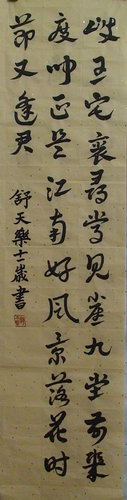 岐王宅裏尋常見崔九堂前幾
度聞正是江南好風景落花時
節又逢君
舒天樂十一歲書